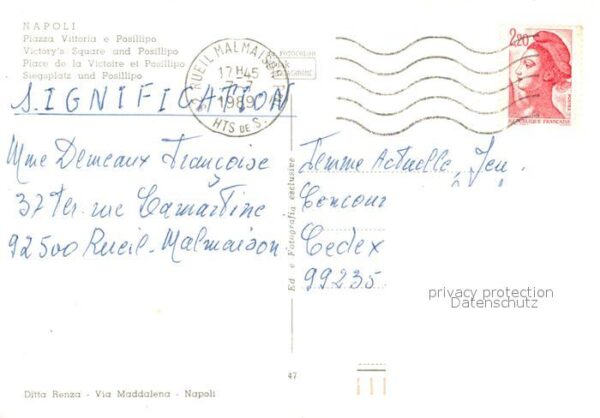 NAPOLI
Piazza Vittoria e Posillipo
Victory's Square and Posillipo
Place de la Victoire et Posillipo
Siegsplatz und Posillipo
RUEIL MALMAISON
17H45
7-7
1989
HTS DE S.
2,20
POSTES
REPUBLIQUE FRANÇAISE
S.I.G.N.I.F.I.C.A.T.I.O.N
Mme Demeaux Françoise
37 Ter. rue Lamartine
92500 Rueil-Malmaison
Ed. e Fotografia esclusive
Femme Actuelle, Jeu.
Concour
Cedex
99235
privacy protection
Datenschutz
47
Ditta Renza - Via Maddalena - Napoli